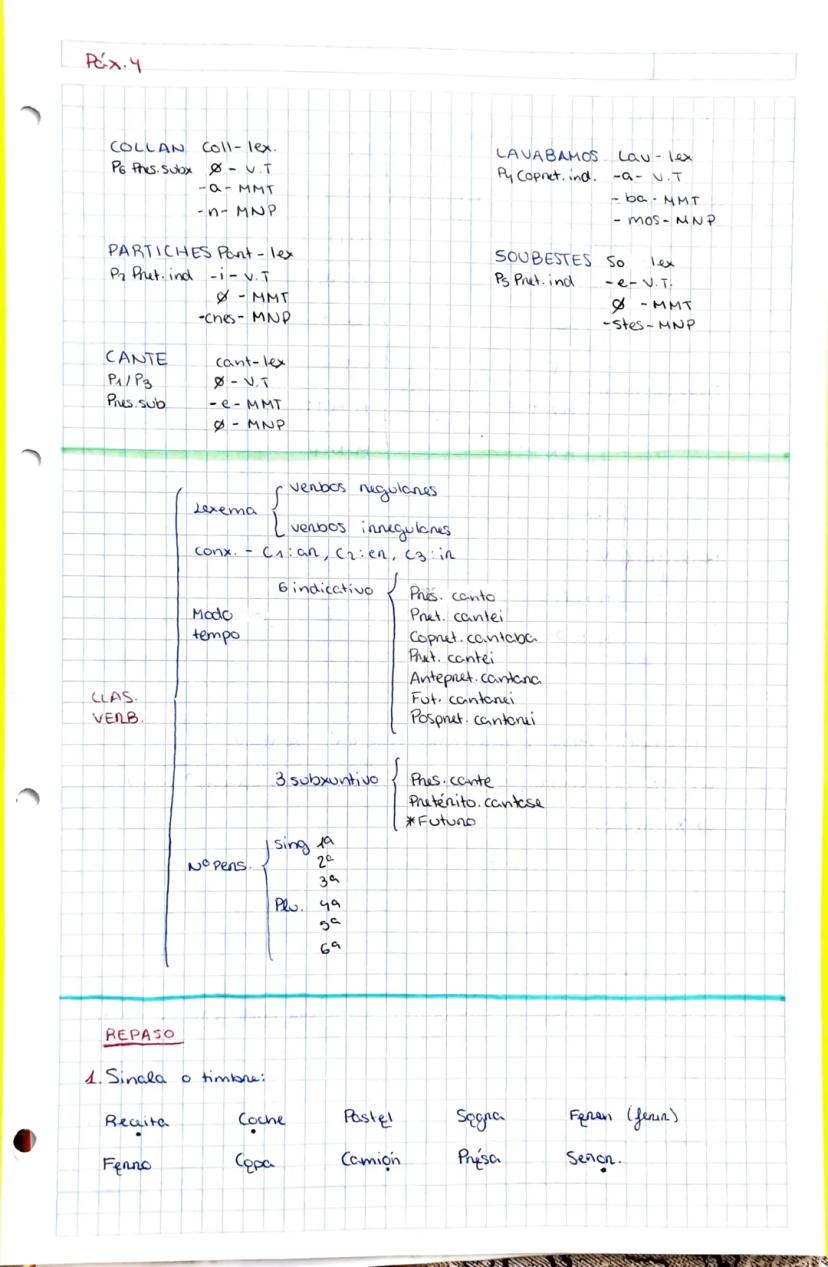 Páx.4
COLLAN Coll-lex.
P6 Pres.subx Ø - V.T
-a- MMT
-n- MNP
LAVABAMOS Lav-lex
P4 Copret.ind. -a- V.T
-ba- MMT
-mos-MNP
PARTICHES Part-lex
P2 Pret.ind -i- V.T
Ø - MMT
-ches- MNP
SOUBESTES So lex
P5 Pret.ind -e- V.T.
Ø -MMT
-stes-MNP
CANTE cant-lex
P1/P3 Ø-V.T
Pres.sub -e-MMT
Ø-MNP
CLAS.
VERB.
Lexema
verbos regulares
verbos irregulares
Conx. - C1:ar, C2:er, C3:ir
Modo
tempo
6 indicativo
Pres. canto
Pret. cantei
Copret. cantaba
Pret. cantei
Antepret. cantara
Fut. cantarei
Pospret. cantarei
3 subxuntivo
Pres. cante
Pretérito. cantase
*Futuro
Nº pers.
Sing 1ª
2ª
3ª
Plu. 4ª
5ª
6ª
REPASO
1. Sinala o timbre:
Receita Coche Pastel Sogra Feren (ferir)
Ferro Copa Camión Présa Señor.